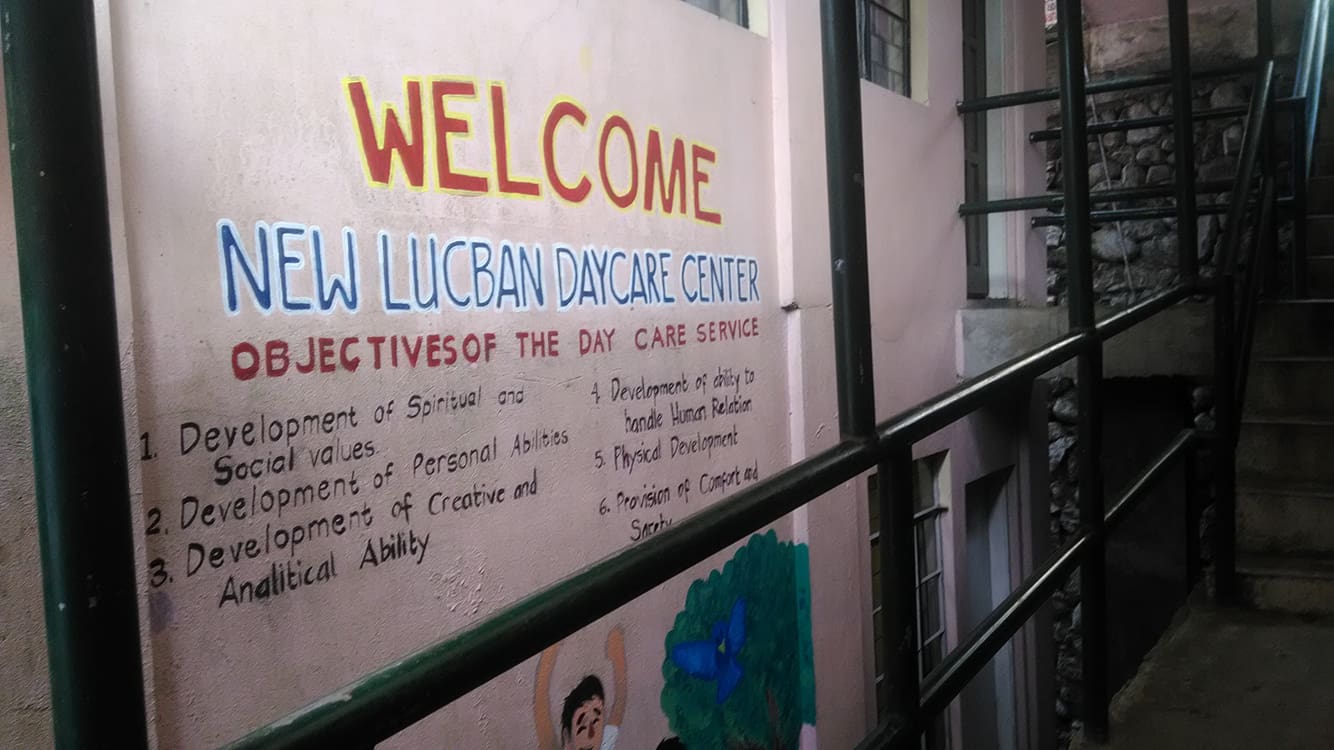 WELCOME
NEW LUCBAN DAYCARE CENTER
OBJECTIVES OF THE DAY CARE SERVICE
1. Development of Spiritual and
Social values.
2. Development of Personal Abilities
3. Development of Creative and
Analitical Ability
4. Development of ability to
handle Human Relation
5. Physical Development
6. Provision of Comfort and